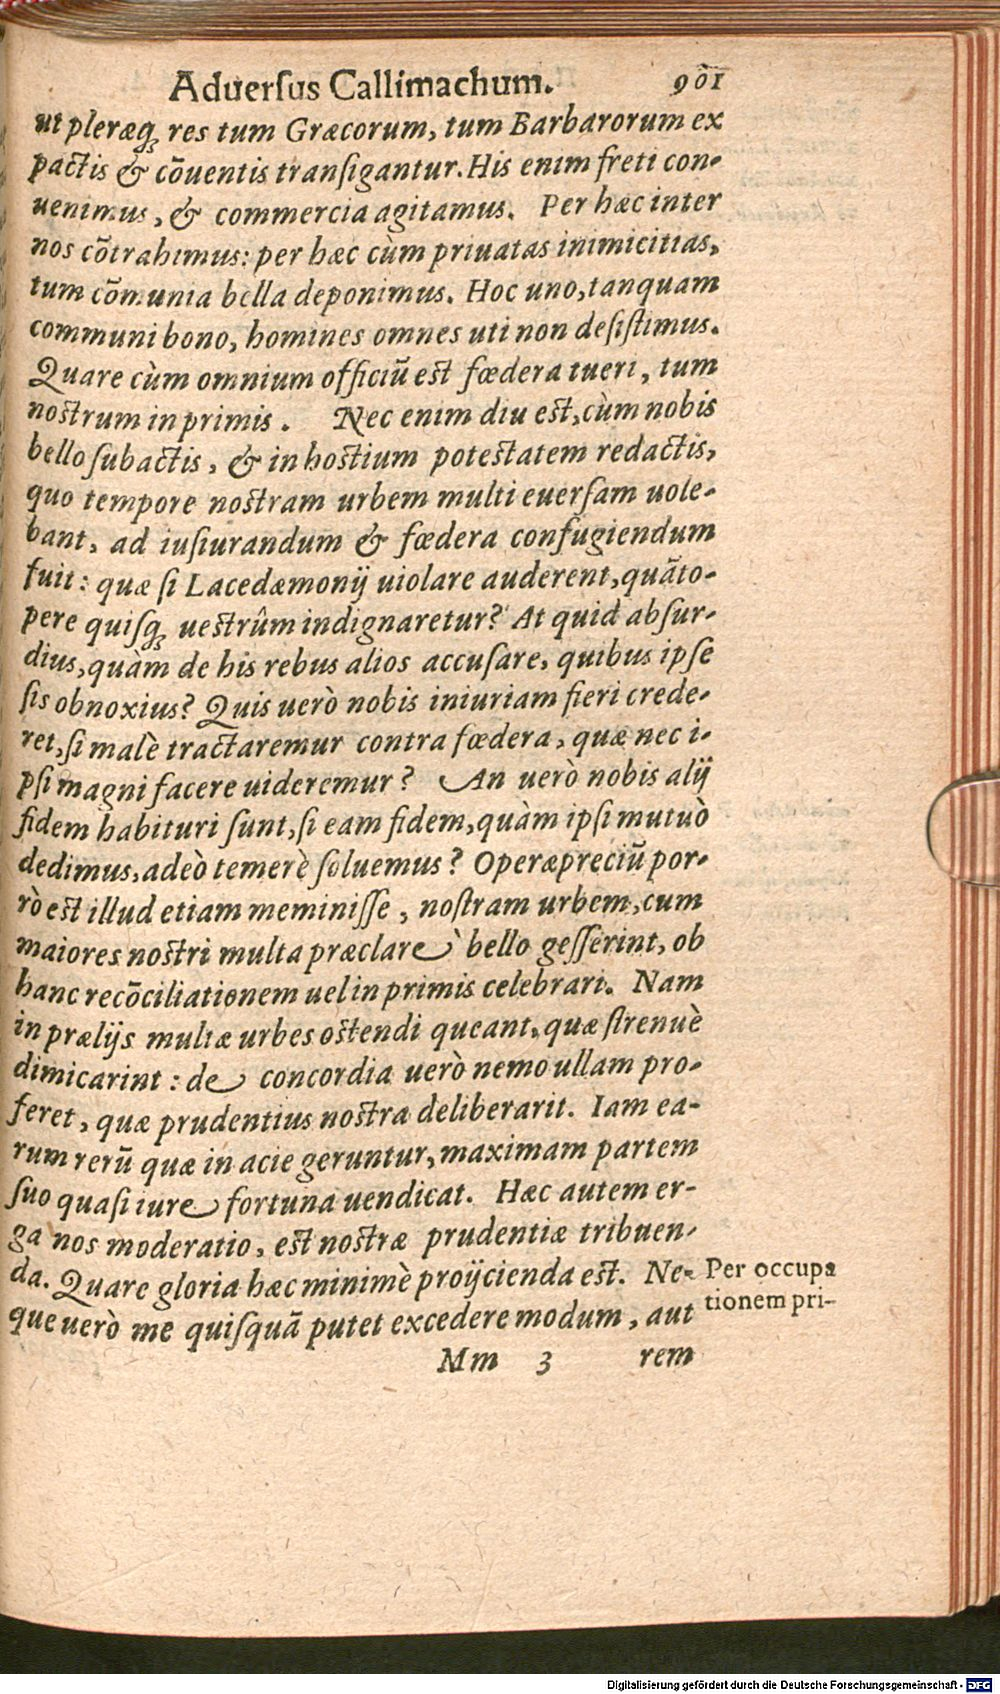 Aduerſus Callimachum. 901
ut pleræq́ꝫ res tum Græcorum, tum Barbarorum ex
pactis & cōuentis tranſigantur. His enim freti con-
uenimus, & commercia agitamus. Per hæc inter
nos cōtrahimus: per hæc cùm priuatas inimicitias,
tum cōmunia bella deponimus. Hoc uno, tanquam
communi bono, homines omnes uti non deſiſtimus.
Quare cùm omnium officiū est fœdera tueri, tum
nostrum in primis. Nec enim diu est, cùm nobis
bello ſubactis, & in hostium potestatem redactis,
quo tempore nostram urbem multi euerſam uole-
bant, ad iuſiurandum & fœdera confugiendum
fuit: quæ ſi Lacedæmonij uiolare auderent, quāto-
pere quiſq́ꝫ uestrûm indignaretur? At quid abſur-
dius, quàm de his rebus alios accuſare, quibus ipſe
ſis obnoxius? Quis uerò nobis iniuriam fieri crede-
ret, ſi malè tractaremur contra fœdera, quæ nec i-
pſi magni facere uideremur? An uerò nobis alij
fidem habituri ſunt, ſi eam fidem, quàm ipſi mutuò
dedimus, adeò temerè ſoluemus? Operæpreciū por-
rò est illud etiam meminiſſe, noſtram urbem, cum
maiores nostri multa præclarè bello geſſerint, ob
hanc recōciliationem uel in primis celebrari. Nam
in prælijs multæ urbes ostendi queant, quæ ſtrenuè
dimicarint: de concordia uerò nemo ullam pro-
feret, quæ prudentius nostra deliberarit. Iam ea-
rum rerū quæ in acie geruntur, maximam partem
ſuo quaſi iure fortuna uendicat. Hæc autem er-
ga nos moderatio, est nostræ prudentiæ tribuen-
da. Quare gloria hæc minimè proijcienda est. Ne-
que uerò me quiſquā putet excedere modum, aut
Per occupa
tionem pri-
Mm 3 rem
Digitalisierung gefördert durch die Deutsche Forschungsgemeinschaft - DFG